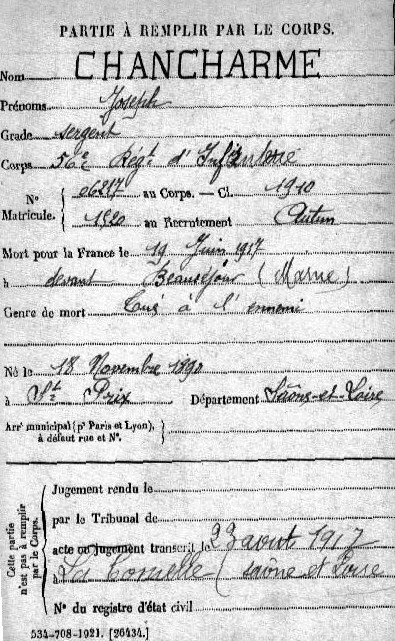 PARTIE À REMPLIR PAR LE CORPS.
Nom CHANCHARME
Prénoms Joseph
Grade sergent
Corps 56e Régt d'Infanterie
N° 06217 au Corps. — Cl. 1910
Matricule. 1220 au Recrutement Autun
Mort pour la France le 19 Juin 1917
à devant Beauséjour (Marne)
Genre de mort Tué à l'ennemi
Né le 18 Novembre 1890
à St Prix Département Saône-et-Loire
Arrt municipal (pr Paris et Lyon),
à défaut rue et N°.
Cette partie
n'est pas à remplir
par le Corps.
Jugement rendu le
par le Tribunal de
acte ou jugement transcrit le 23 août 1917
à La Comelle (Saône et Loire
N° du registre d'état civil
534-708-1921. [26434.]